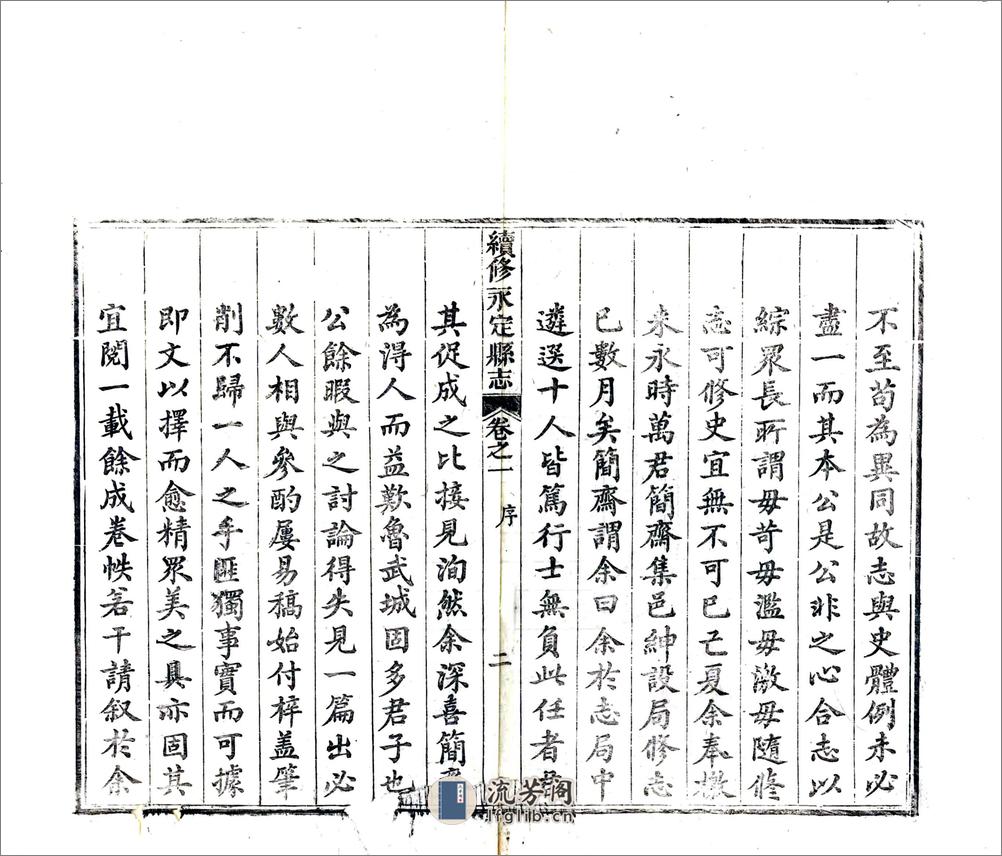 不至苟為異同故志與史體例未必
盡一而其本公是公非之心合志以
綜眾長所謂毋苛毋濫毋激毋隨修
志可修史宜無不可已亡夏余奉檄
来永時萬君簡齋集邑紳設局修志
已數月矣簡齋謂余曰余於志局中
遴選十人皆篤行士無負此任者
續修永定縣志
卷之一
序
二
其促成之比接見洵然余深喜簡
為得人而益歎魯武城固多君子也
公餘暇與之討論得失見一篇出必
數人相與參酌屢易稿始付梓蓋肇
削不歸一人之手匪獨事實而可據
即文以擇而愈精眾美之具亦固其
宜閱一載餘成卷帙若干請叙於余
流芳閣
lfglib.cn